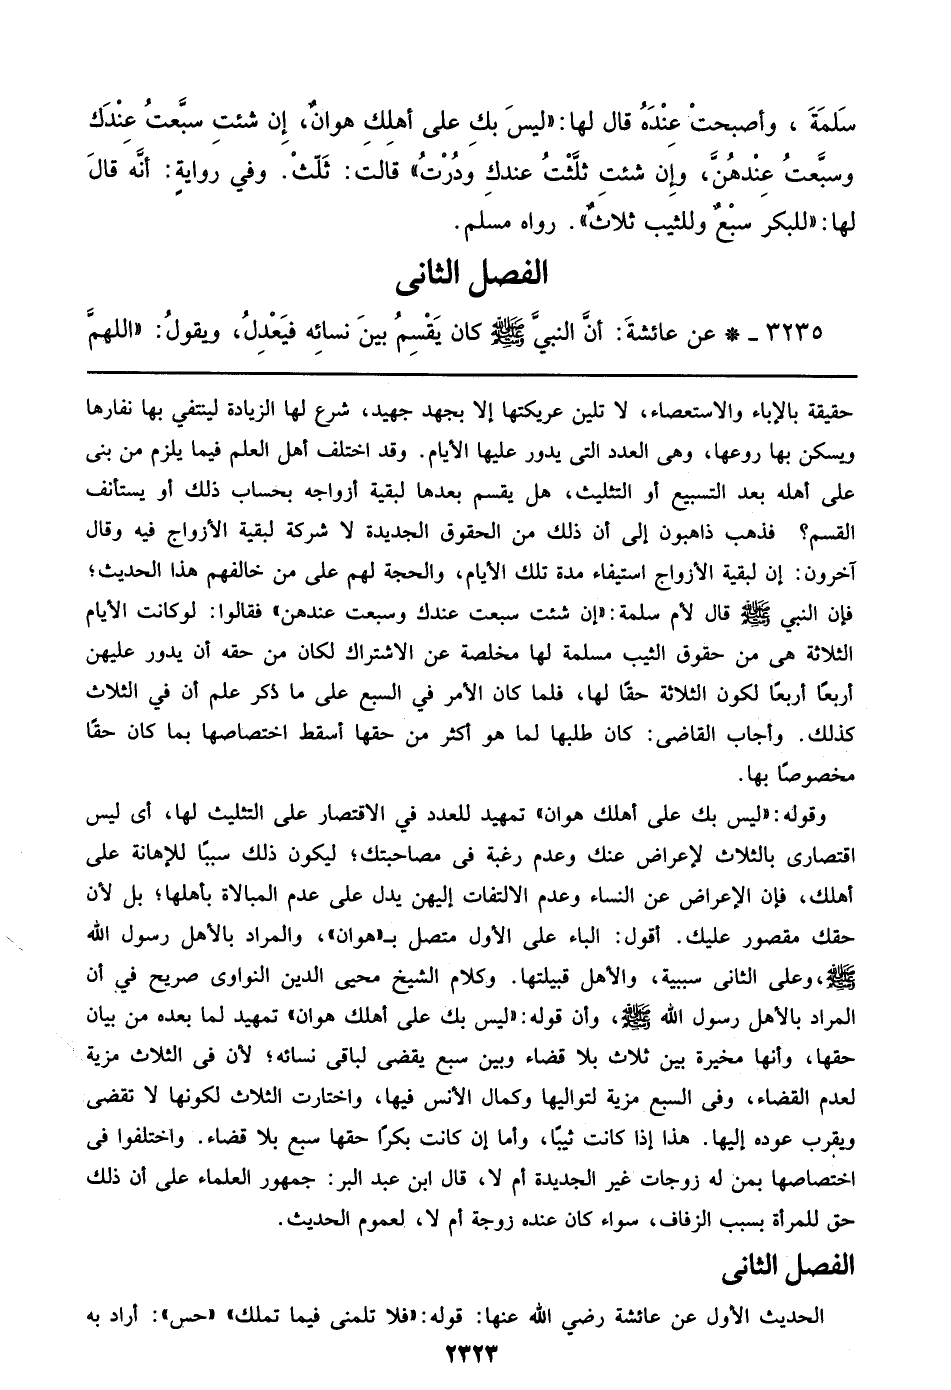 سَلَمَةَ ، وأصبحتْ عِنْدَهُ قال لها: «ليسَ بكِ على أهلِكِ هوانٌ، إن شئتِ سبَّعتُ عِندَكِ
وسبَّعتُ عِنْدهُنَّ، وإن شئتِ ثلَّثْتُ عندكِ ودُرْتُ» قالت: ثَلّثْ. وفي روايةٍ: أنَّه قالَ
لها: «للبكر سبْعٌ وللثيب ثلاثٌ». رواه مسلم.
الفصل الثانى
٣٢٣٥ ـ * عن عائشةَ: أنَّ النبيَّ ﷺ كان يَقْسِمُ بينَ نسائِه فيَعْدِلُ، ويقولُ: «اللهمَّ
حقيقة بالإباء والاستعصاء، لا تلين عريكتها إلا بجهد جهيد، شرع لها الزيادة لينتفي بها نفارها
ويسكن بها روعها، وهى العدد التى يدور عليها الأيام. وقد اختلف أهل العلم فيما يلزم من بنى
على أهله بعد التسبيع أو التثليث، هل يقسم بعدها لبقية أزواجه بحساب ذلك أو يستأنف
القسم؟ فذهب ذاهبون إلى أن ذلك من الحقوق الجديدة لا شركة لبقية الأزواج فيه وقال
آخرون: إن لبقية الأزواج استيفاء مدة تلك الأيام، والحجة لهم على من خالفهم هذا الحديث؛
فإن النبي ﷺ قال لأم سلمة: «إن شئت سبعت عندك وسبعت عندهن» فقالوا: لوكانت الأيام
الثلاثة هى من حقوق الثيب مسلمة لها مخلصة عن الاشتراك لكان من حقه أن يدور عليهن
أربعًا أربعًا لكون الثلاثة حقًا لها، فلما كان الأمر في السبع على ما ذكر علم أن في الثلاث
كذلك. وأجاب القاضى: كان طلبها لما هو أكثر من حقها أسقط اختصاصها بما كان حقًا
مخصوصًا بها.
وقوله: «ليس بك على أهلك هوان» تمهيد للعدد في الاقتصار على التثليث لها، أى ليس
اقتصارى بالثلاث لإعراض عنك وعدم رغبة فى مصاحبتك؛ ليكون ذلك سببًا للإهانة على
أهلك، فإن الإعراض عن النساء وعدم الالتفات إليهن يدل على عدم المبالاة بأهلها؛ بل لأن
حقك مقصور عليك. أقول: الباء على الأول متصل بـ«هوان»، والمراد بالأهل رسول الله
ﷺ، وعلى الثانى سببية، والأهل قبيلتها. وكلام الشيخ محيى الدين النواوى صريح في أن
المراد بالأهل رسول الله ﷺ، وأن قوله: «ليس بك على أهلك هوان» تمهيد لما بعده من بيان
حقها، وأنها مخيرة بين ثلاث بلا قضاء وبين سبع يقضى لباقى نسائه؛ لأن فى الثلاث مزية
لعدم القضاء، وفى السبع مزية لتواليها وكمال الأنس فيها، واختارت الثلاث لكونها لا تقضى
ويقرب عوده إليها. هذا إذا كانت ثيبًا، وأما إن كانت بكرًا حقها سبع بلا قضاء. واختلفوا فى
اختصاصها بمن له زوجات غير الجديدة أم لا، قال ابن عبد البر: جمهور العلماء على أن ذلك
حق للمرأة بسبب الزفاف، سواء كان عنده زوجة أم لا، لعموم الحديث.
الفصل الثانى
الحديث الأول عن عائشة رضي الله عنها: قوله: «فلا تلمنى فيما تملك» «حس»: أراد به
٢٣٢٣